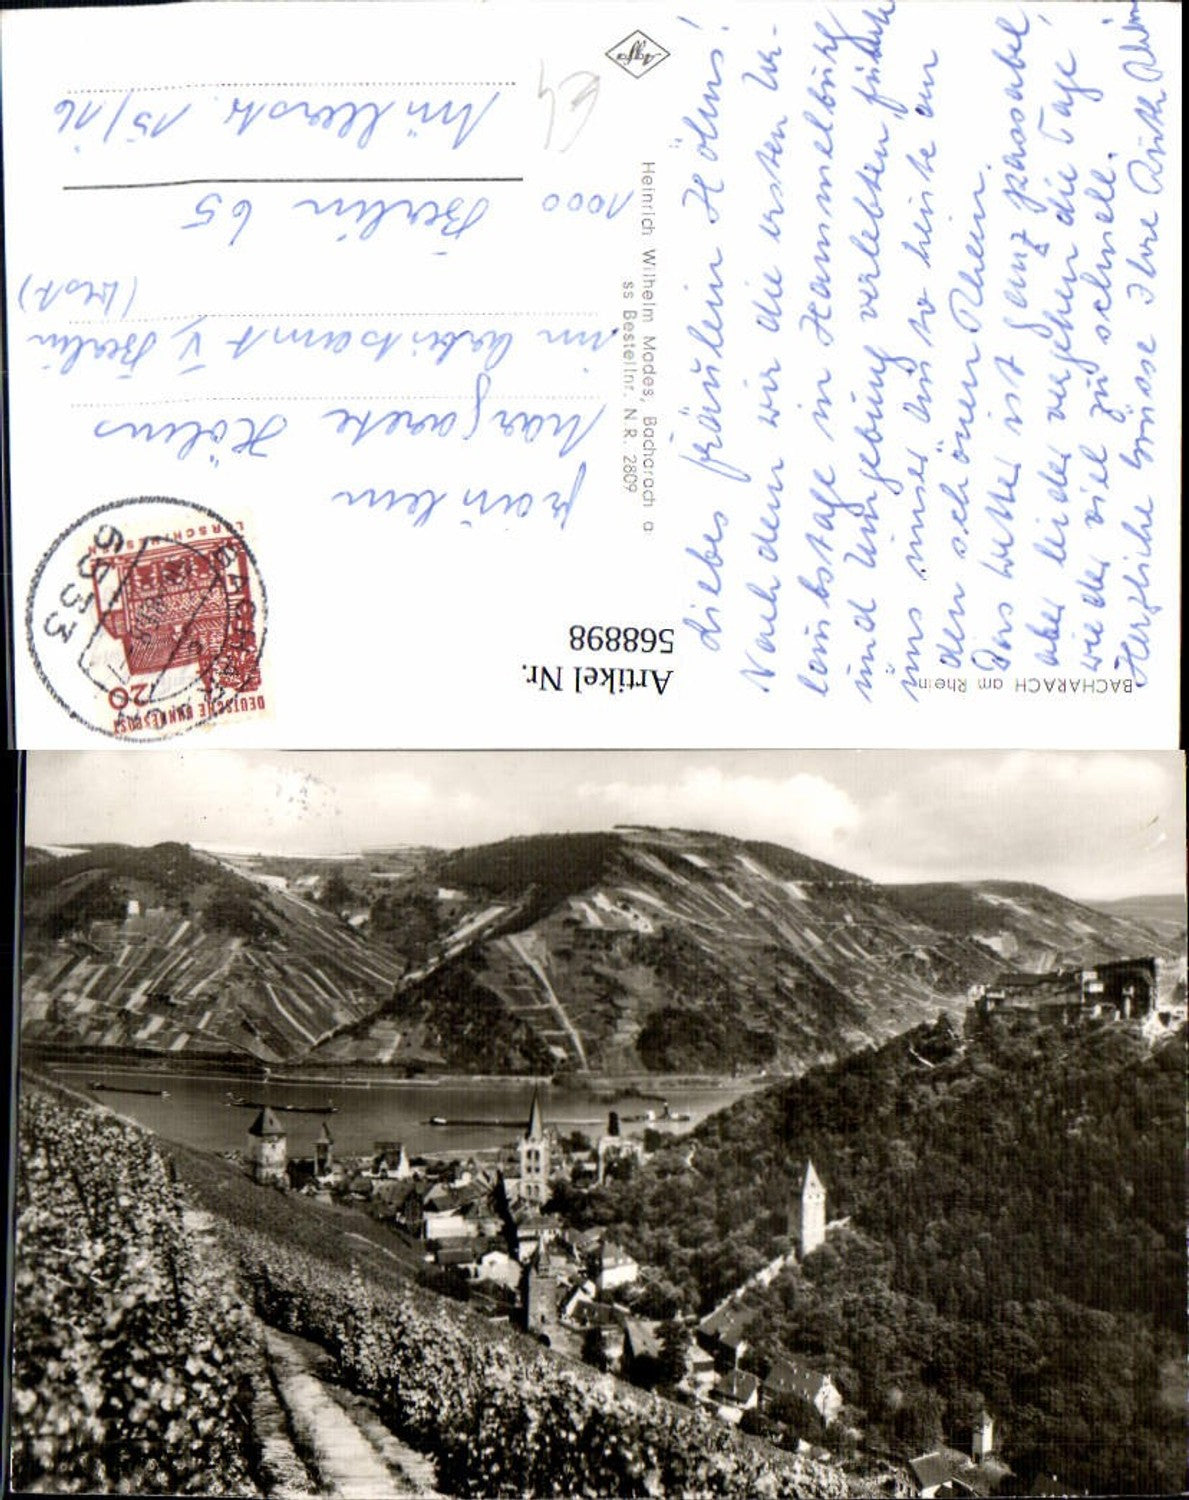 Liebes Fräulein Hölms!
Nachdem wir die ersten Ur-
laubstage in Hammelburg
und Umgebung verlebten, führte
uns unser Auto heute an
den schönen Rhein.
Das Wetter ist ganz passabel,
aber leider vergehen die Tage
wieder viel zu schnell.
Herzliche Grüsse Ihre Ruth
BACHARACH am Rhein
Artikel Nr.
568898
Heinrich Wilhelm Mades, Bacharach a
ss Bestellnr. N.R. 2809
Agfa
DEUTSCHE BUNDESPOST
20
LORSCH/HESSEN
BACHARACH
6533
Fräulein
Margarete Hölms
im Arbeitsamt V, Berlin
(West)
1000 Berlin 65
Müllerstr. 15/16